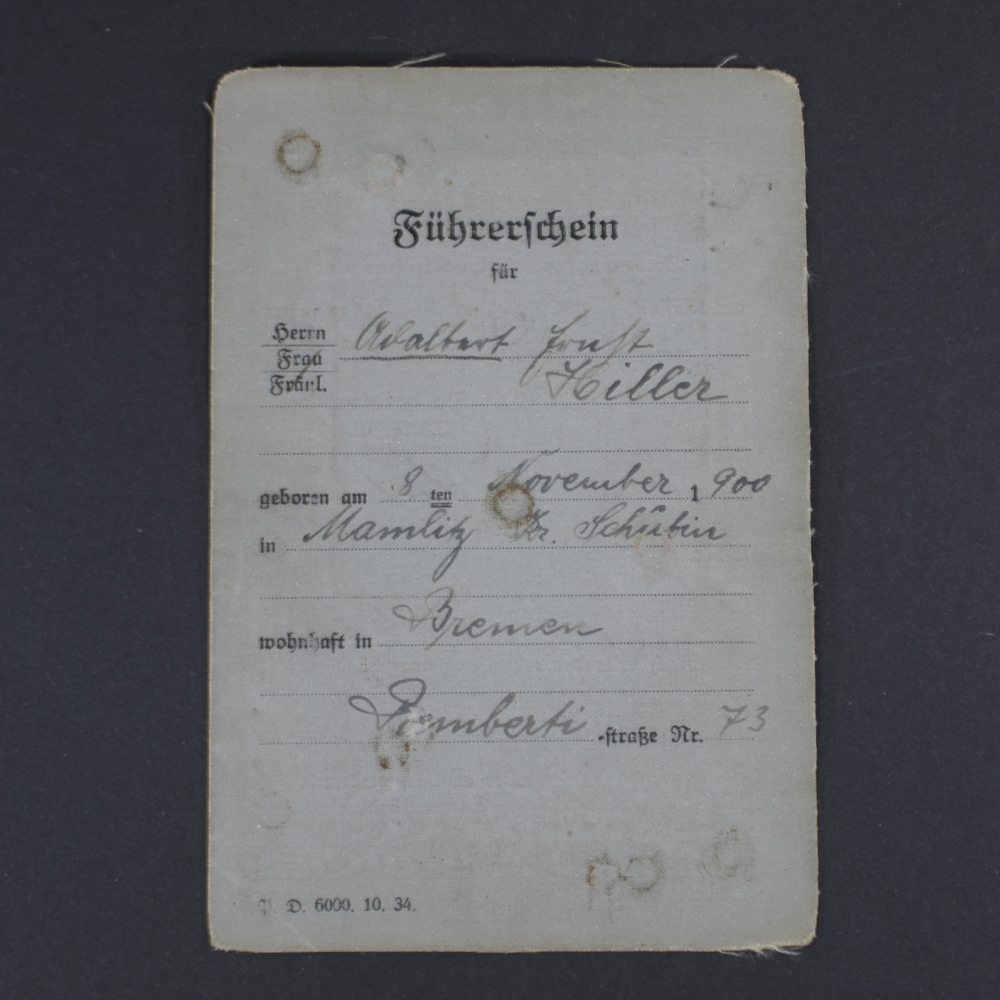 Führerschein
für
Herrn
Frau
Fräul.
Adalbert Ernst
Hiller
geboren am 8 ten November 1900
in Mamlitz Kr. Schubin
wohnhaft in Bremen
Remberti -straße Nr. 73
D. 6000. 10. 34.